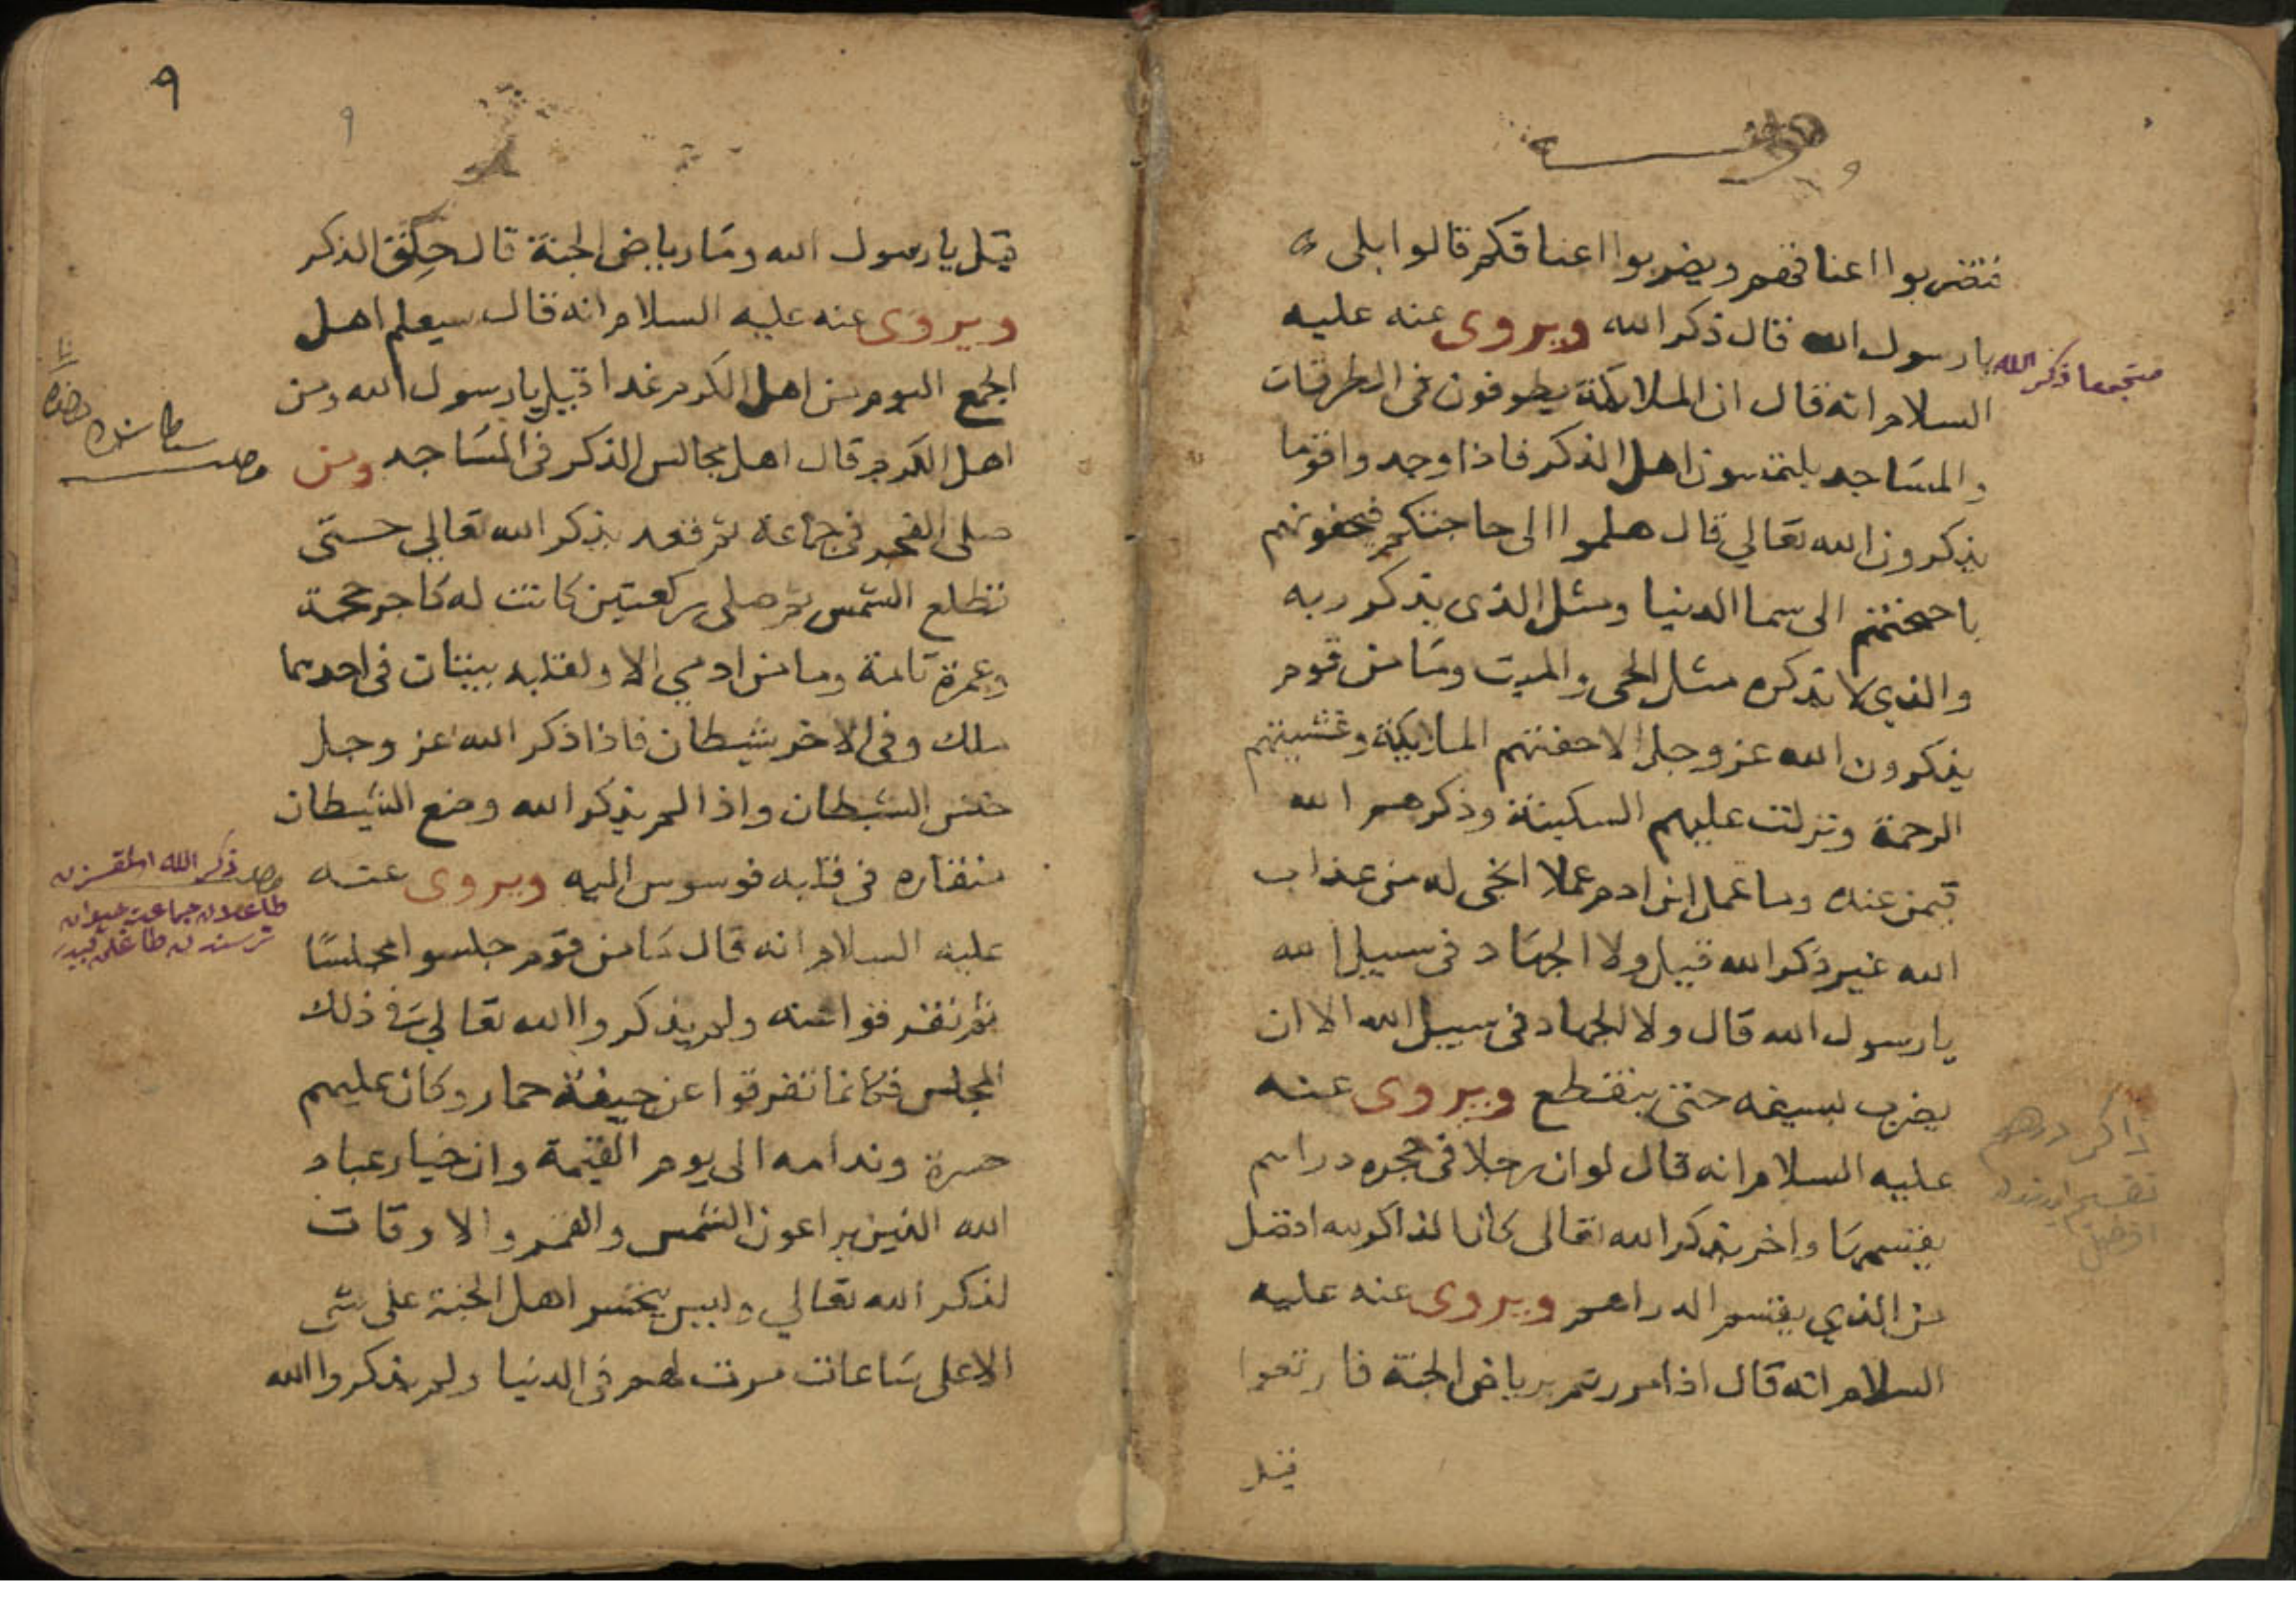 فتضربوا اعناقهم ويضربوا اعناقكم قالوا بلى
يا رسول الله قال ذكر الله ويروى عنه عليه
السلام انه قال ان الملايكة يطوفون في الطرقات
والمساجد يلتمسون اهل الذكر فاذا وجدوا قوما
يذكرون الله تعالي قال هلموا الى حاجتكم فيحفونهم
باجنحتهم الى سما الدنيا ومثل الذى يذكر ربه
والذي لا يذكره مثل الحى والميت وما من قوم
يذكرون الله عز وجل الا حفتهم الملايكة وغشيتهم
الرحمة ونزلت عليهم السكينة وذكرهم الله
فيمن عنده وما عمل ابن ادم عملا انجى له من عذاب
الله غير ذكر الله قيل ولا الجهاد في سبيل الله
يا رسول الله قال ولا الجهاد في سبيل الله الا ان
يضرب بسيفه حتى ينقطع ويروى عنه
عليه السلام انه قال لو ان رجلا في حجره دراهم
يقسمها واخر يذكر الله تعالى كان الذاكر لله افضل
من الذي يقسم الدراهم ويروى عنه عليه
السلام انه قال اذا مررتم برياض الجنة فارتعوا
قيل
ذكر الله
ذاكر درهم
تقسيم
افضل
٩
٩
قيل يا رسول الله وما رياض الجنة قال حِلَق الذكر
ويروى عنه عليه السلام انه قال سيعلم اهل
الجمع اليوم من اهل الكرم غدا قيل يا رسول الله ومن
اهل الكرم قال اهل مجالس الذكر في المساجد ومن
صلى الفجر في جماعة ثم قعد يذكر الله تعالي حتى
تطلع الشمس ثم صلى ركعتين كانت له كاجر حجة
وعمرة تامة وما من ادمي الا ولقلبه بيتان في احدهما
ملك وفى الاخر شيطان فاذا ذكر الله عز وجل
خنس الشيطان واذا لم يذكر الله وضع الشيطان
منقاره في قلبه فوسوس اليه ويروى عنه
عليه السلام انه قال ما من قوم جلسوا مجلسًا
ثم تفرقوا منه ولم يذكروا الله تعالي في ذلك
المجلس فكانما تفرقوا عن جيفة حمار وكان عليهم
حسرة وندامه الى يوم القيمة وان خيار عباد
الله الذين يراعون الشمس والقمر والاوقات
لذكر الله تعالي وليس يتحسر اهل الجنة على شى
الا على ساعات مرت لهم في الدنيا ولم يذكروا الله
ذكر الله
جماعت